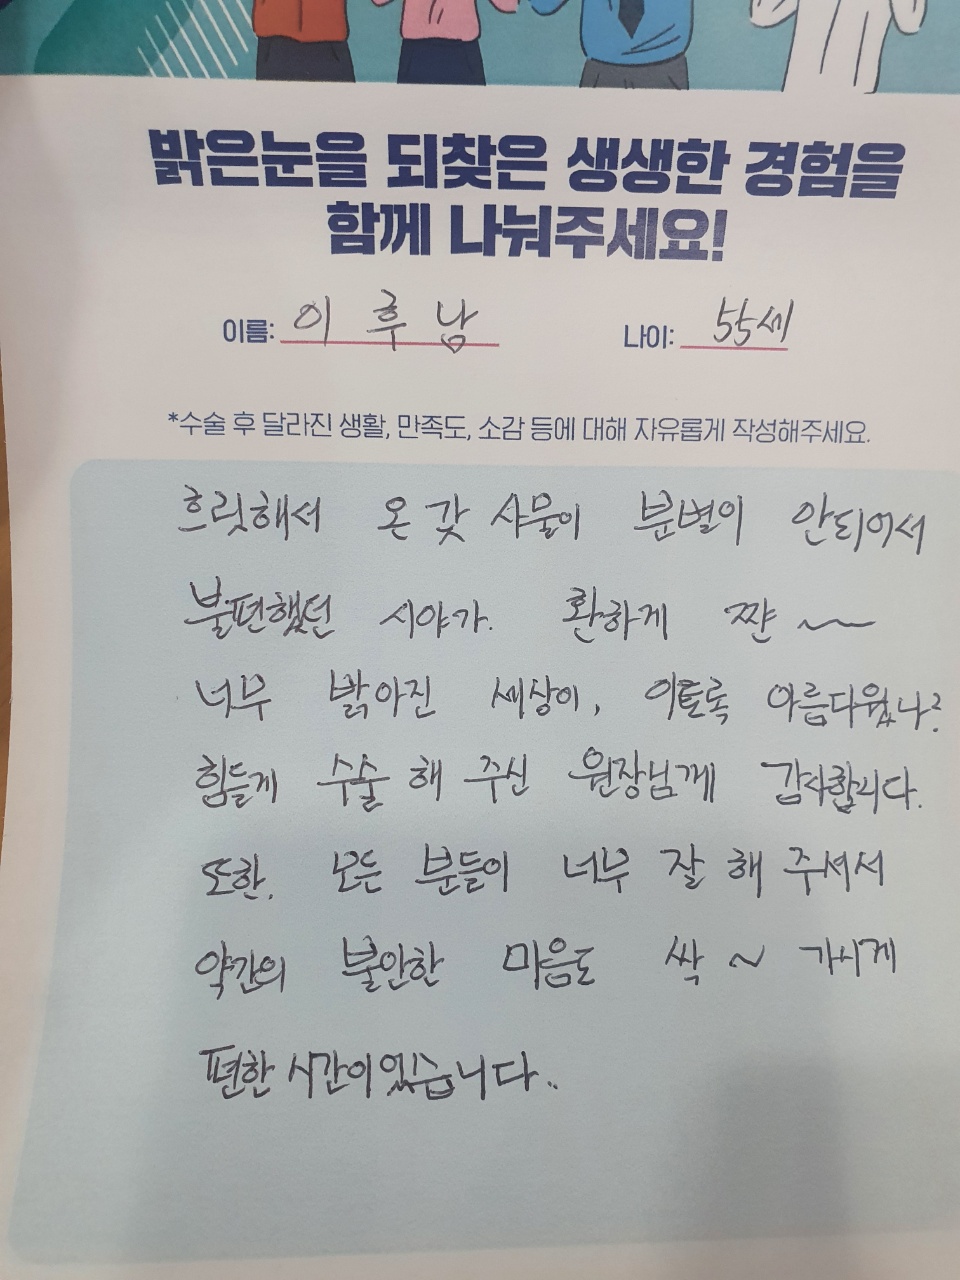 밝은눈을 되찾은 생생한 경험을
함께 나눠주세요!
이름: 이 후 남 나이: 55세
*수술 후 달라진 생활, 만족도, 소감 등에 대해 자유롭게 작성해주세요.
흐릿해서 온갖 사물이 분별이 안되어서
불편했던 시야가. 환하게 쨘~
너무 밝아진 세상이, 이토록 아름다웠나?
힘들게 수술 해 주신 원장님께 감사합니다.
또한, 모든 분들이 너무 잘 해 주셔서
약간의 불안한 마음도 싹~ 가시게
편한 시간이었습니다..